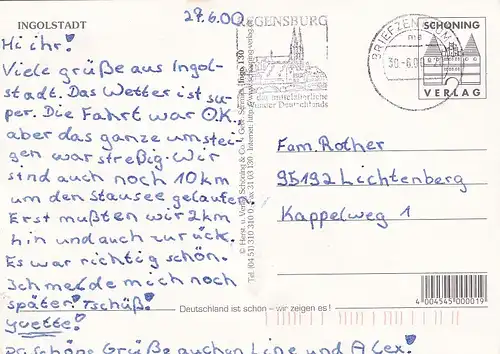 INGOLSTADT
29.6.00
Hi ihr!
Viele grüße aus Ingol-
stadt. Das Wetter ist su-
per. Die Fahrt war O.K.,
aber das ganze umstei-
gen war streßig. Wir
sind auch noch 10 km
um den Stausee gelaufen.
Erst mußten wir 2km
hin und auch zurück.
Es war richtig schön.
Ich melde mich noch
später! Tschüß!
Yvette!
Schöne Grüße auch an Line und Alex!
REGENSBURG
das mittelalterliche
Wunder Deutschlands
BRIEFZENTRUM
30.-6.00
SCHÖNING
VERLAG
Fam. Rother
95192 Lichtenberg
Kappelweg 1
Deutschland ist schön – wir zeigen es!
4 004545 000019